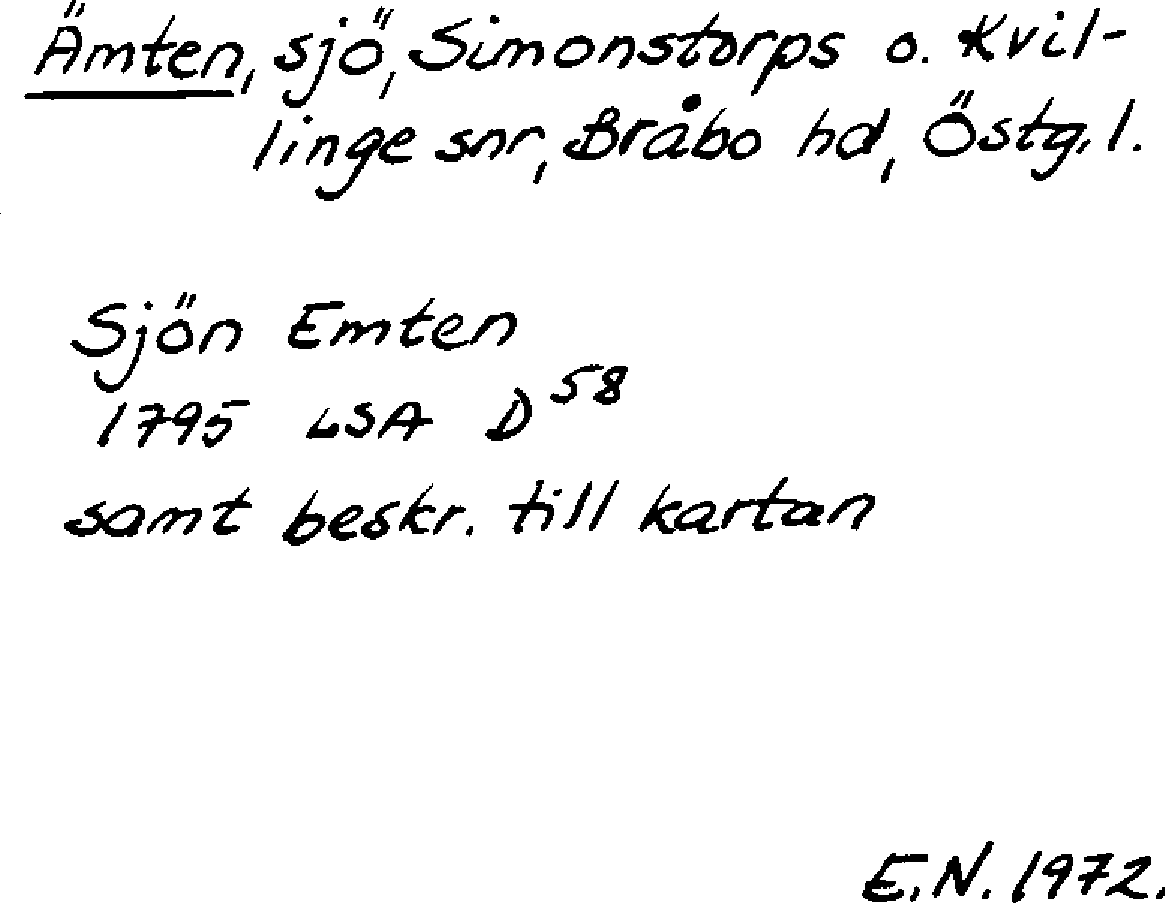 Ämten, sjö, Simonstorps o. Kvil-
linge snr, Bråbo hd, Östg. l.
Sjön Emten
1795 LSA D58
samt beskr. till kartan
E.N. 1972.